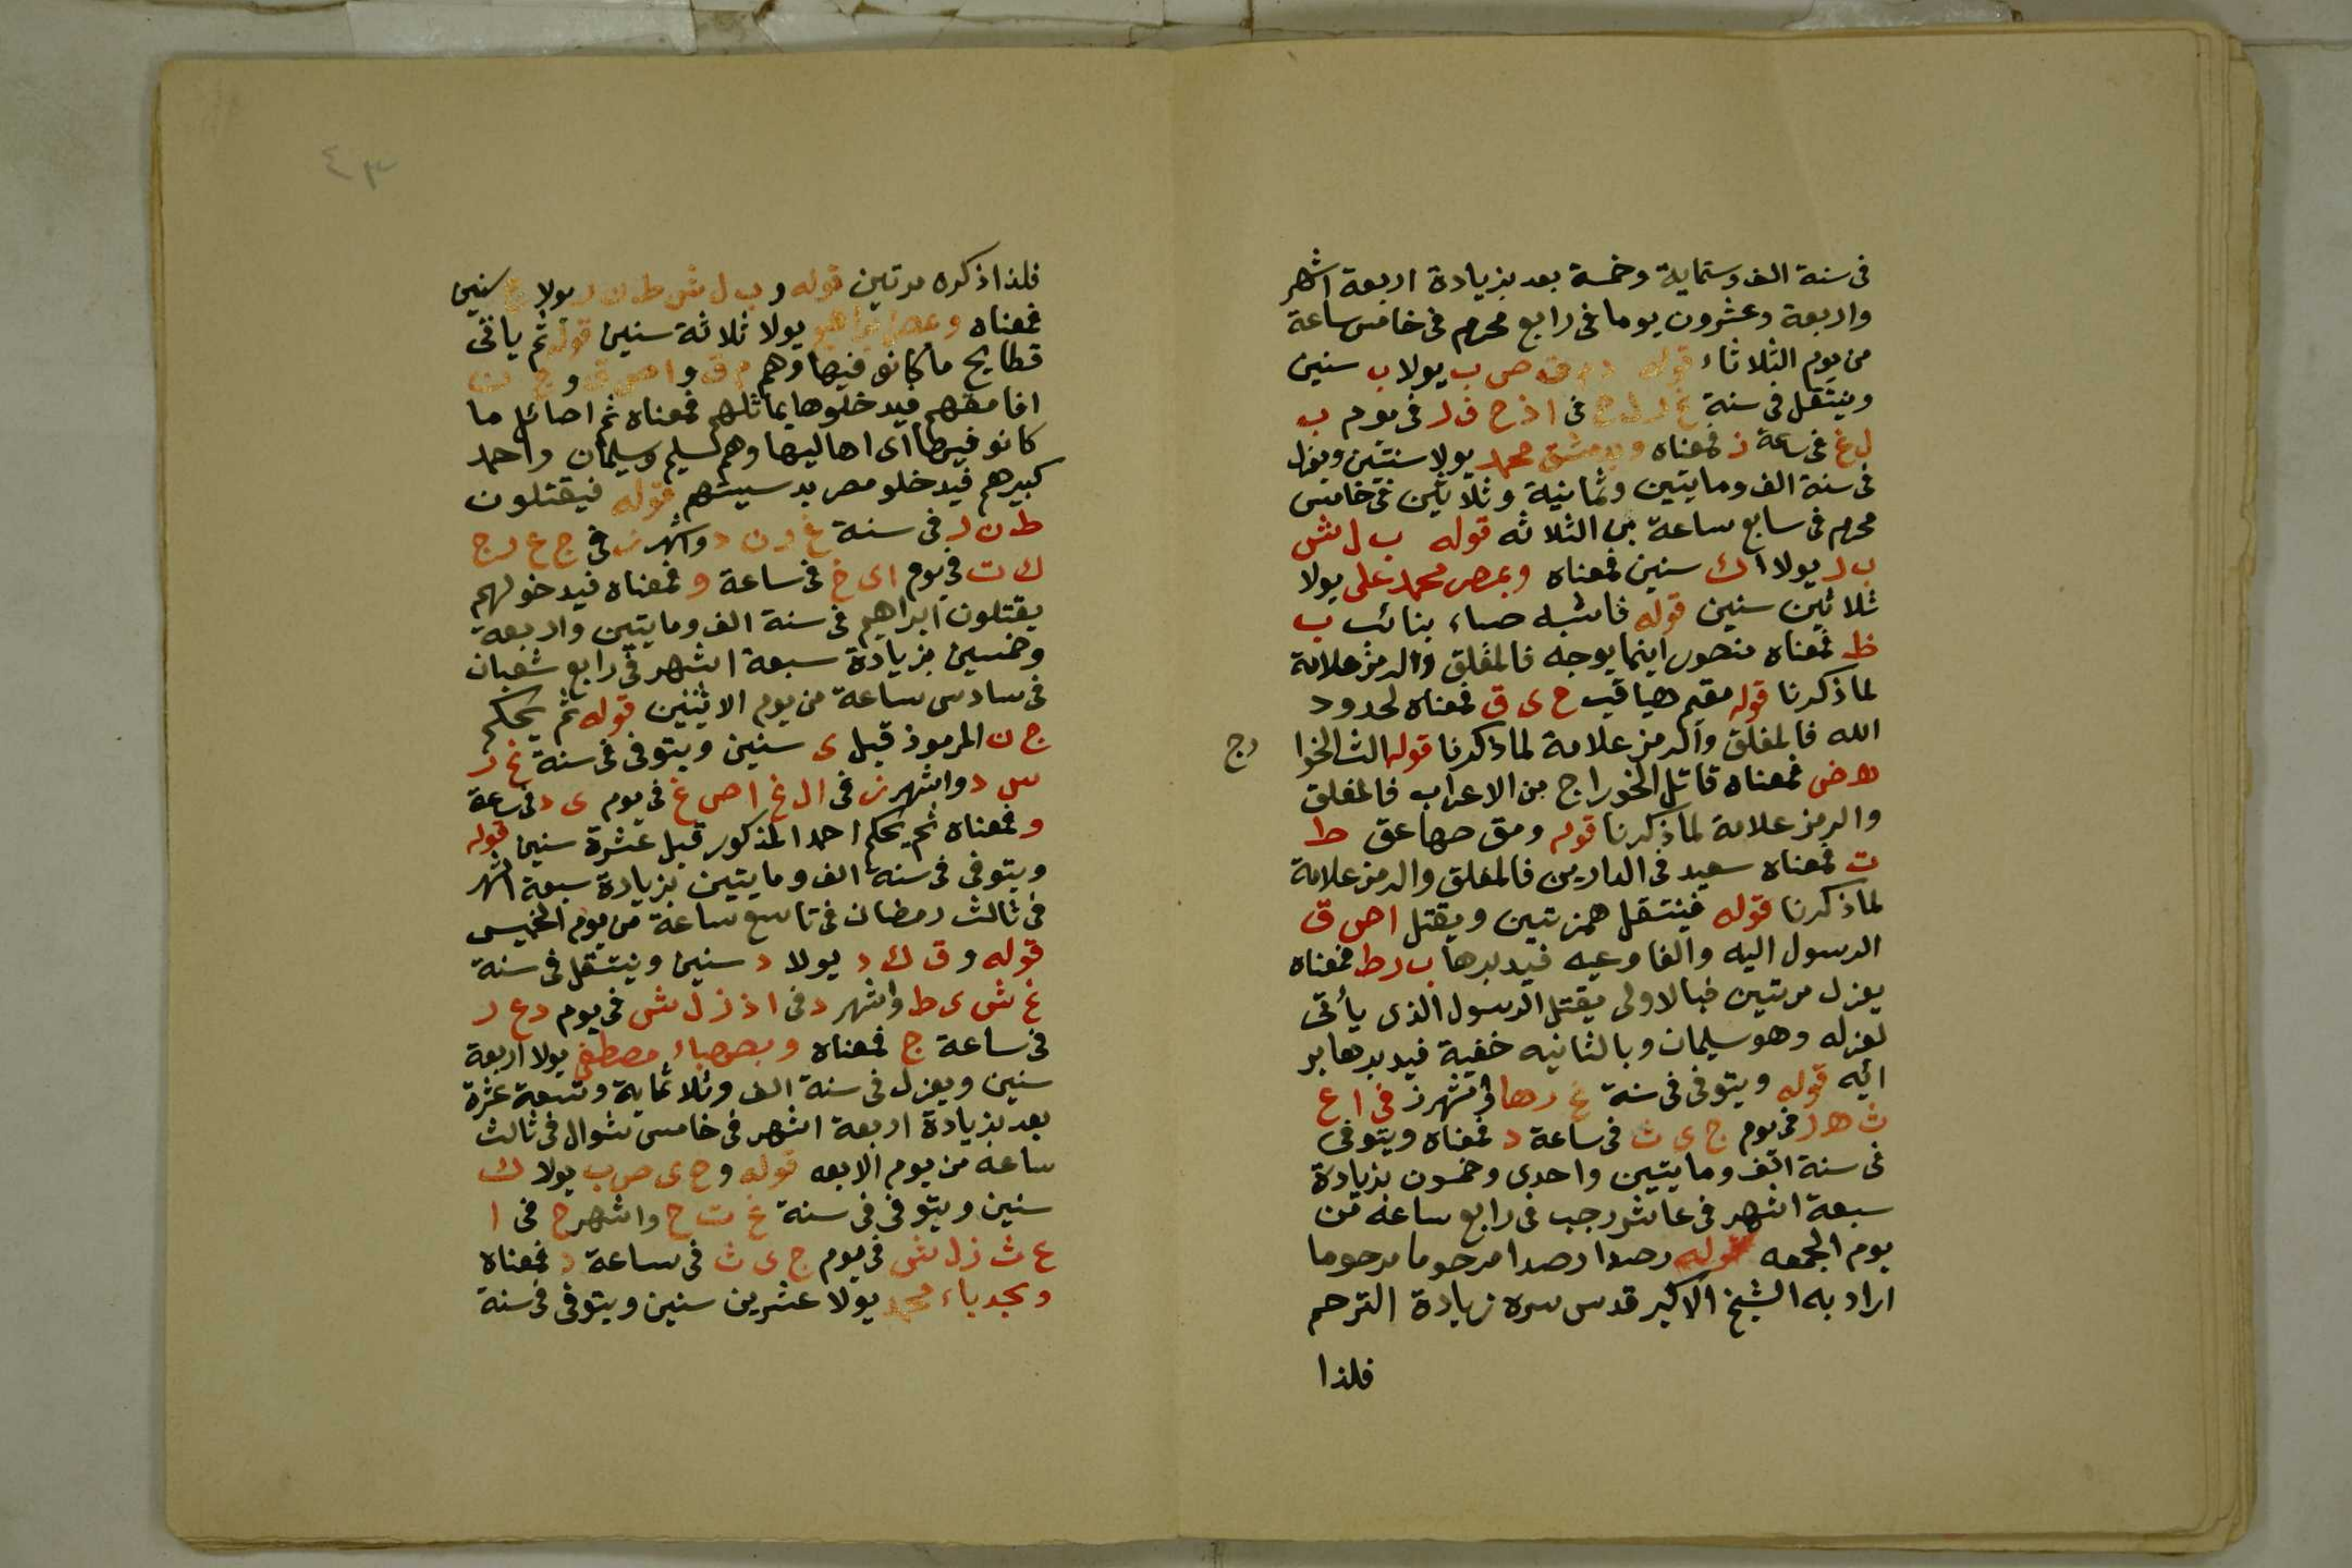 فى سنة الف وستماية وخمسة بعد بزيادة اربعة اشهر
واربعة وعشرون يوما فى رابع محرم فى خامس ساعة
من يوم الثلاثاء قوله ص ب يولا ب سنين
وينتقل فى سنة فى ا ذ ح ف ر فى يوم ب
ل غ فى ساعة ز فمعناه وبدمشق محمد يولا سنتين ويعزل
فى سنة الف ومايتين وثمانية وثلاثين فى خامس
محرم فى سابع ساعة من الثلاثه قوله ب ل ش
ب ر يولا ا ك سنين فمعناه وبمصر محمد على يولا
ثلاثين سنين قوله فاشبه صاء بنائب ب
ظ فمعناه منصور اينما يوجه فالمغلق والرمز علامة
لما ذكرنا قوله مقيم هياقيب ح ى ق فمعناه لحدود
الله فالمغلق والرمز علامة لما ذكرنا قوله الث الخوا
رج
ه ض فمعناه قاتل الخوراج من الاعراب فالمغلق
والرمز علامة لما ذكرنا قوله ومق صهاعق ط
ت فمعناه سعيد فى الدارين فالمغلق والرمز علامة
لما ذكرنا قوله فينتقل همزتين ويقتل ا ص ق
الرسول اليه والفاوعيه فيدبرها ب ر ط فمعناه
يعزل مرتين فبالاولى يقتل الرسول الذى يأتى
لعزله وهو سليمان وبالثانيه خفية فيدبرها بر
ائيه قوله ويتوفى فى سنة غ ر ها واشهر ز فى ا ع
ث ه ر فى يوم ج ى ث فى ساعة د فمعناه ويتوفى
فى سنة الف ومايتين واحدى وخمسون بزيادة
سبعة اشهر فى عاشر رجب فى رابع ساعة من
يوم الجمعه قوله رصدا رصدا مرحوما مرحوما
اراد به الشيخ الاكبر قدس سره زيادة الترحم
فلذا
٤٣
فلذا ذكره مرتين قوله و ب ل ش ط ن ر يولا ج سنين
فمعناه وعصر ابراهيم يولا ثلاثة سنين قوله ثم ياتى
قطايح ما كانو فيها وهم م ق و ا ص ق و ج ن
افامقهم فيدخلوها بماثلهم فمعناه ثم اصائل ما
كانو فيها اى اهاليها وهم سليم وسليمان واحمد
كبيرهم فيدخلو مصر بد سيستهم قوله فيقتلون
ط ن ر فى سنة غ ر ن د واشهر ز فى ج ع ر ج
ك ت فى يوم ا ى خ فى ساعة و فمعناه فيدخولهم
يقتلون ابراهيم فى سنة الف ومايتين واربعة
وخمسين بزيادة سبعة اشهر فى رابع شعبان
فى سادس ساعة من يوم الاثنين قوله ثم يحكم
ج ن المرموز قبل ى سنين ويتوفى فى سنة غ ر
س د واشهر ز فى ا ل غ ا ص غ فى يوم ى د فى ساعة
و فمعناه ثم يحكم احمد المذكور قبل عشرة سنين قوله
ويتوفى فى سنة الف ومايتين بزيادة سبعة اشهر
فى ثالث رمضان فى تاسع ساعة من يوم الخميس
قوله و ق ك د يولا د سنين وينتقل فى سنة
غ ش ى ط واشهر د فى ا ذ ز ل ش فى يوم د ع ر
فى ساعة ج فمعناه وبصهباء مصطفى يولا اربعة
سنين ويعزل فى سنة الف وثلاثماية وتسعة عشرة
بعد بزيادة اربعة اشهر فى خامس شوال فى ثالث
ساعه من يوم الابعه قوله و ح ى ص ب يولا ك
سنين ويتوفى فى سنة غ ت ح واشهر ح فى ا
ع ث ز ل ش فى يوم ج ى ث فى ساعة د فمعناه
وبحدباء محمد يولا عشرين سنين ويتوفى فى سنة